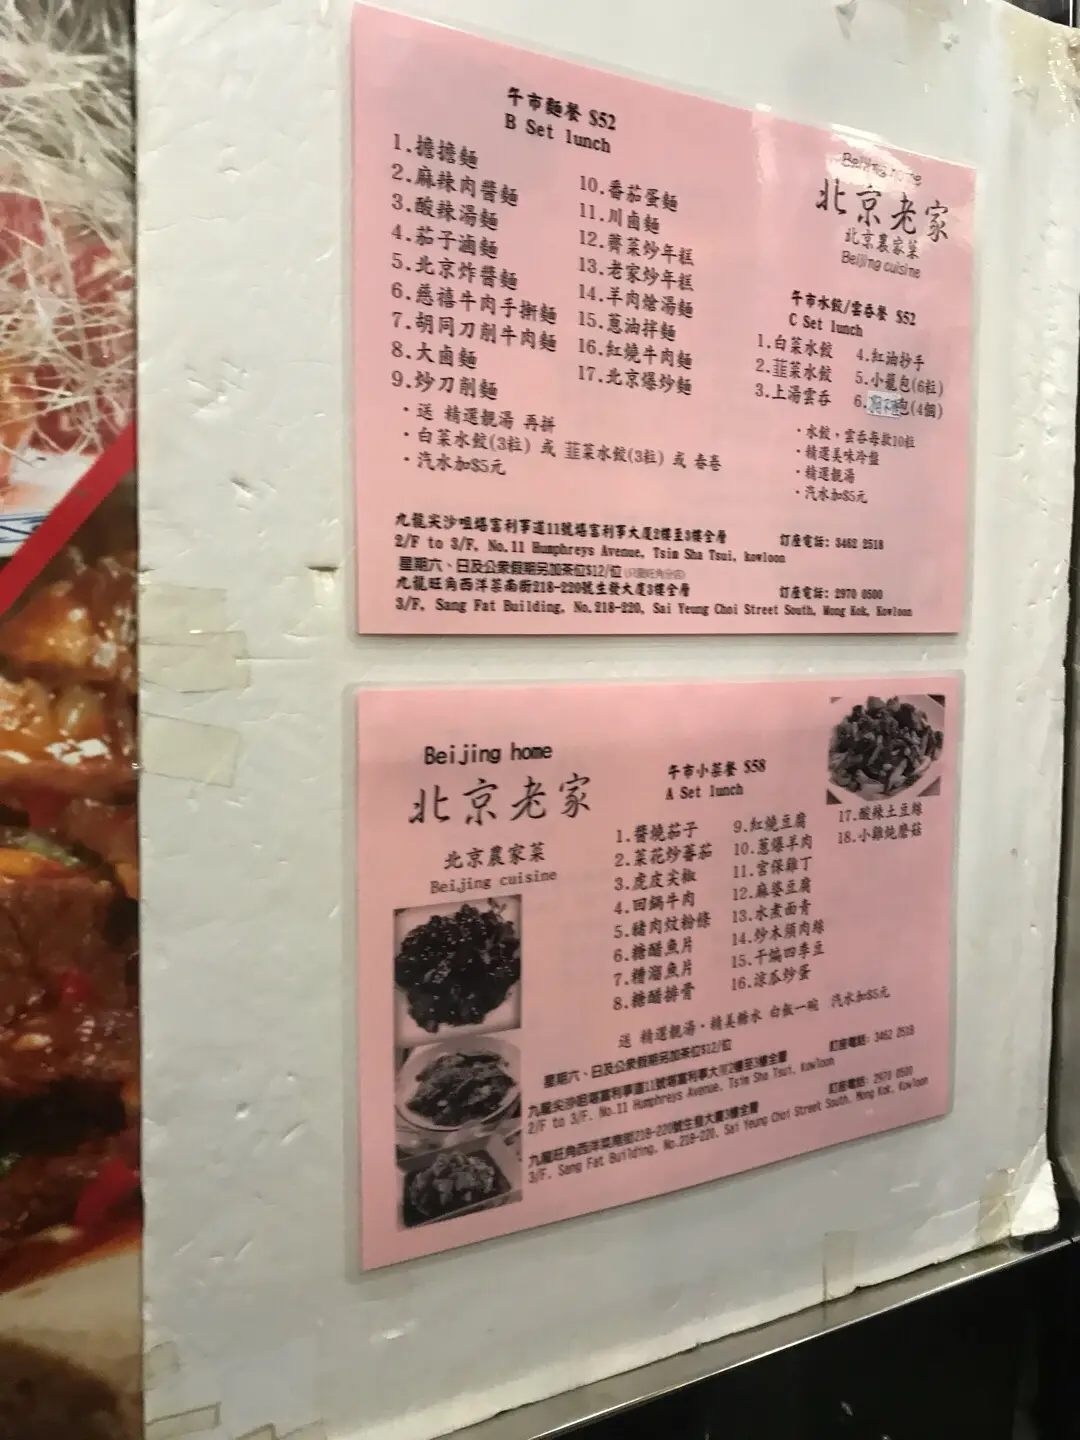 午市麵餐 $52
B Set lunch
1.擔擔麵
2.麻辣肉醬麵
3.酸辣湯麵
4.茄子滷麵
5.北京炸醬麵
6.慈禧牛肉手擀麵
7.胡同刀削牛肉麵
8.大鹵麵
9.炒刀削麵
10.番茄蛋麵
11.川鹵麵
12.薺菜炒年糕
13.老家炒年糕
14.羊肉燴湯麵
15.蔥油拌麵
16.紅燒牛肉麵
17.北京爆炒麵
·送 精選靚湯 再拼
·白菜水餃(3粒) 或 韮菜水餃(3粒) 或 春卷
·汽水加$5元
Beijing home
北京老家
北京農家菜
Beijing cuisine
午市水餃/雲吞餐 $52
C Set lunch
1.白菜水餃
2.韮菜水餃
3.上湯雲吞
4.紅油抄手
5.小籠包(6粒)
6.狗不理包(4個)
·水餃,雲吞每款10粒
·精選美味冷盤
·精選靚湯
·汽水加$5元
九龍尖沙咀堪富利事道11號堪富利事大廈2樓至3樓全層 訂座電話: 3462 2518
2/F to 3/F, No.11 Humphreys Avenue, Tsim Sha Tsui, kowloon
星期六、日及公眾假期另加茶位$12/位 (只限旺角分店)
九龍旺角西洋菜南街218-220號生發大廈3樓全層 訂座電話: 2970 0500
3/F, Sang Fat Building, No.218-220, Sai Yeung Choi Street South, Mong Kok, Kowloon
Beijing home
北京老家
北京農家菜
Beijing cuisine
午市小菜餐 $58
A Set lunch
1.醬燒茄子
2.菜花炒蕃茄
3.虎皮尖椒
4.回鍋牛肉
5.豬肉炆粉條
6.糖醋魚片
7.糟溜魚片
8.糖醋排骨
9.紅燒豆腐
10.蔥爆羊肉
11.宮保雞丁
12.麻婆豆腐
13.水煮面青
14.炒木須肉絲
15.干煸四季豆
16.涼瓜炒蛋
17.酸辣土豆絲
18.小雞炖蘑菇
送 精選靚湯·精美糖水 白飯一碗 汽水加$5元
星期六、日及公眾假期另加茶位$12/位
九龍尖沙咀堪富利事道11號堪富利事大廈2樓至3樓全層 訂座電話: 3462 2518
2/F to 3/F, No.11 Humphreys Avenue, Tsim Sha Tsui, Kowloon
九龍旺角西洋菜南街218-220號生發大廈3樓全層 訂座電話: 2970 0500
3/F, Sang Fat Building, No.218-220, Sai Yeung Choi Street South, Mong Kok, Kowloon